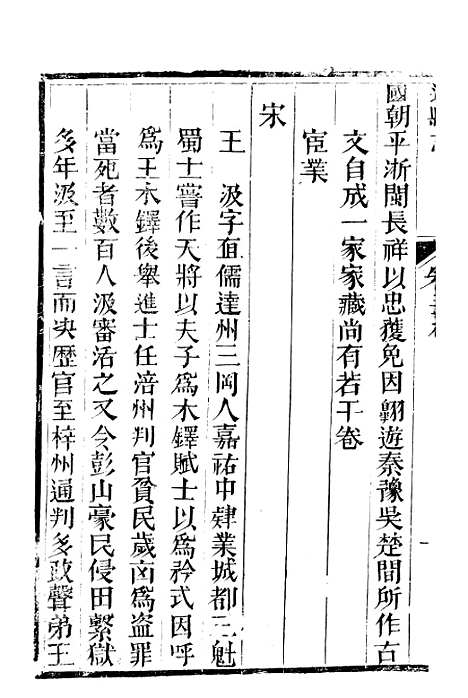 國朝平浙閩長祥以忠獲免因翺遊秦豫吳楚間所作古
文自成一家家藏尚有若干卷
宦業
宋
王　汲字直儒達州三岡人嘉祐中肄業城都三魁
蜀士嘗作天將以夫子爲木鐸賦士以爲矜式因呼
爲王木鐸後舉進士任涪州判官貧民歲凶爲盜罪
當死者數百人汲審活之又令彭山豪民侵田繫獄
多年汲至一言而決歷官至梓州通判多政聲弟王